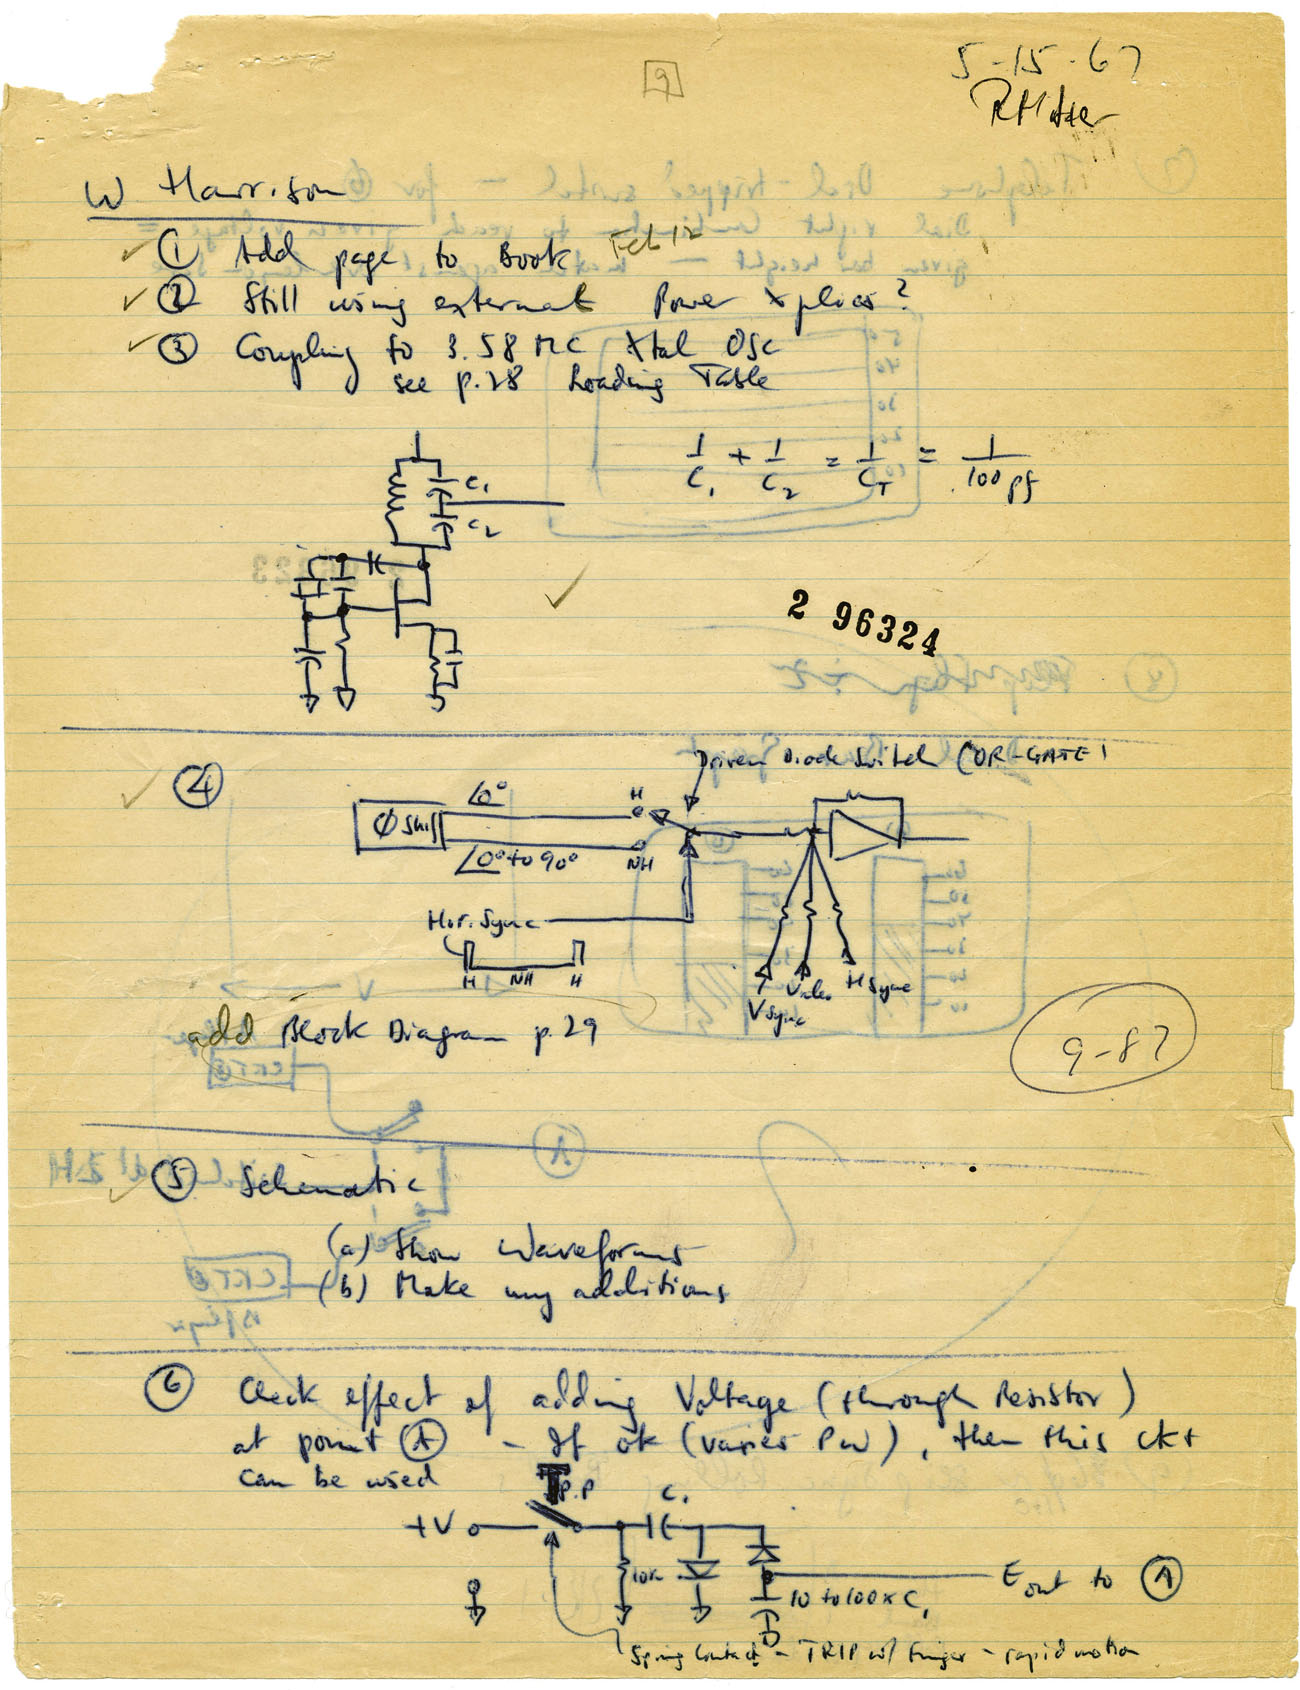 9
5-15-67
W Harrison
① Add page to Book Feb 12
② Still using external Power
③ Coupling to 3.58 MC Xtal Osc
see p.28 Loading Table
1/C1 + 1/C2 = 1/CT = 1/100 pf
C1
C2
2 96324
④
Driven Diode Switch (OR-GATE)
∅ Shift
∠0°
H
∠0° to 90°
NH
Hor. Sync
H NH H
V Sync
Video
H Sync
add Block Diagram p.29
9-87
⑤ Schematic
(a) Show Waveforms
(b) Make any additions
⑥ Check effect of adding Voltage (through Resistor)
at point Ⓐ - If ok (varies PW), then this ckt
can be used
+V
C1
10K
10 to 100 x C1
Eout to Ⓐ
Spring Contact - TRIP w/ finger - rapid motion